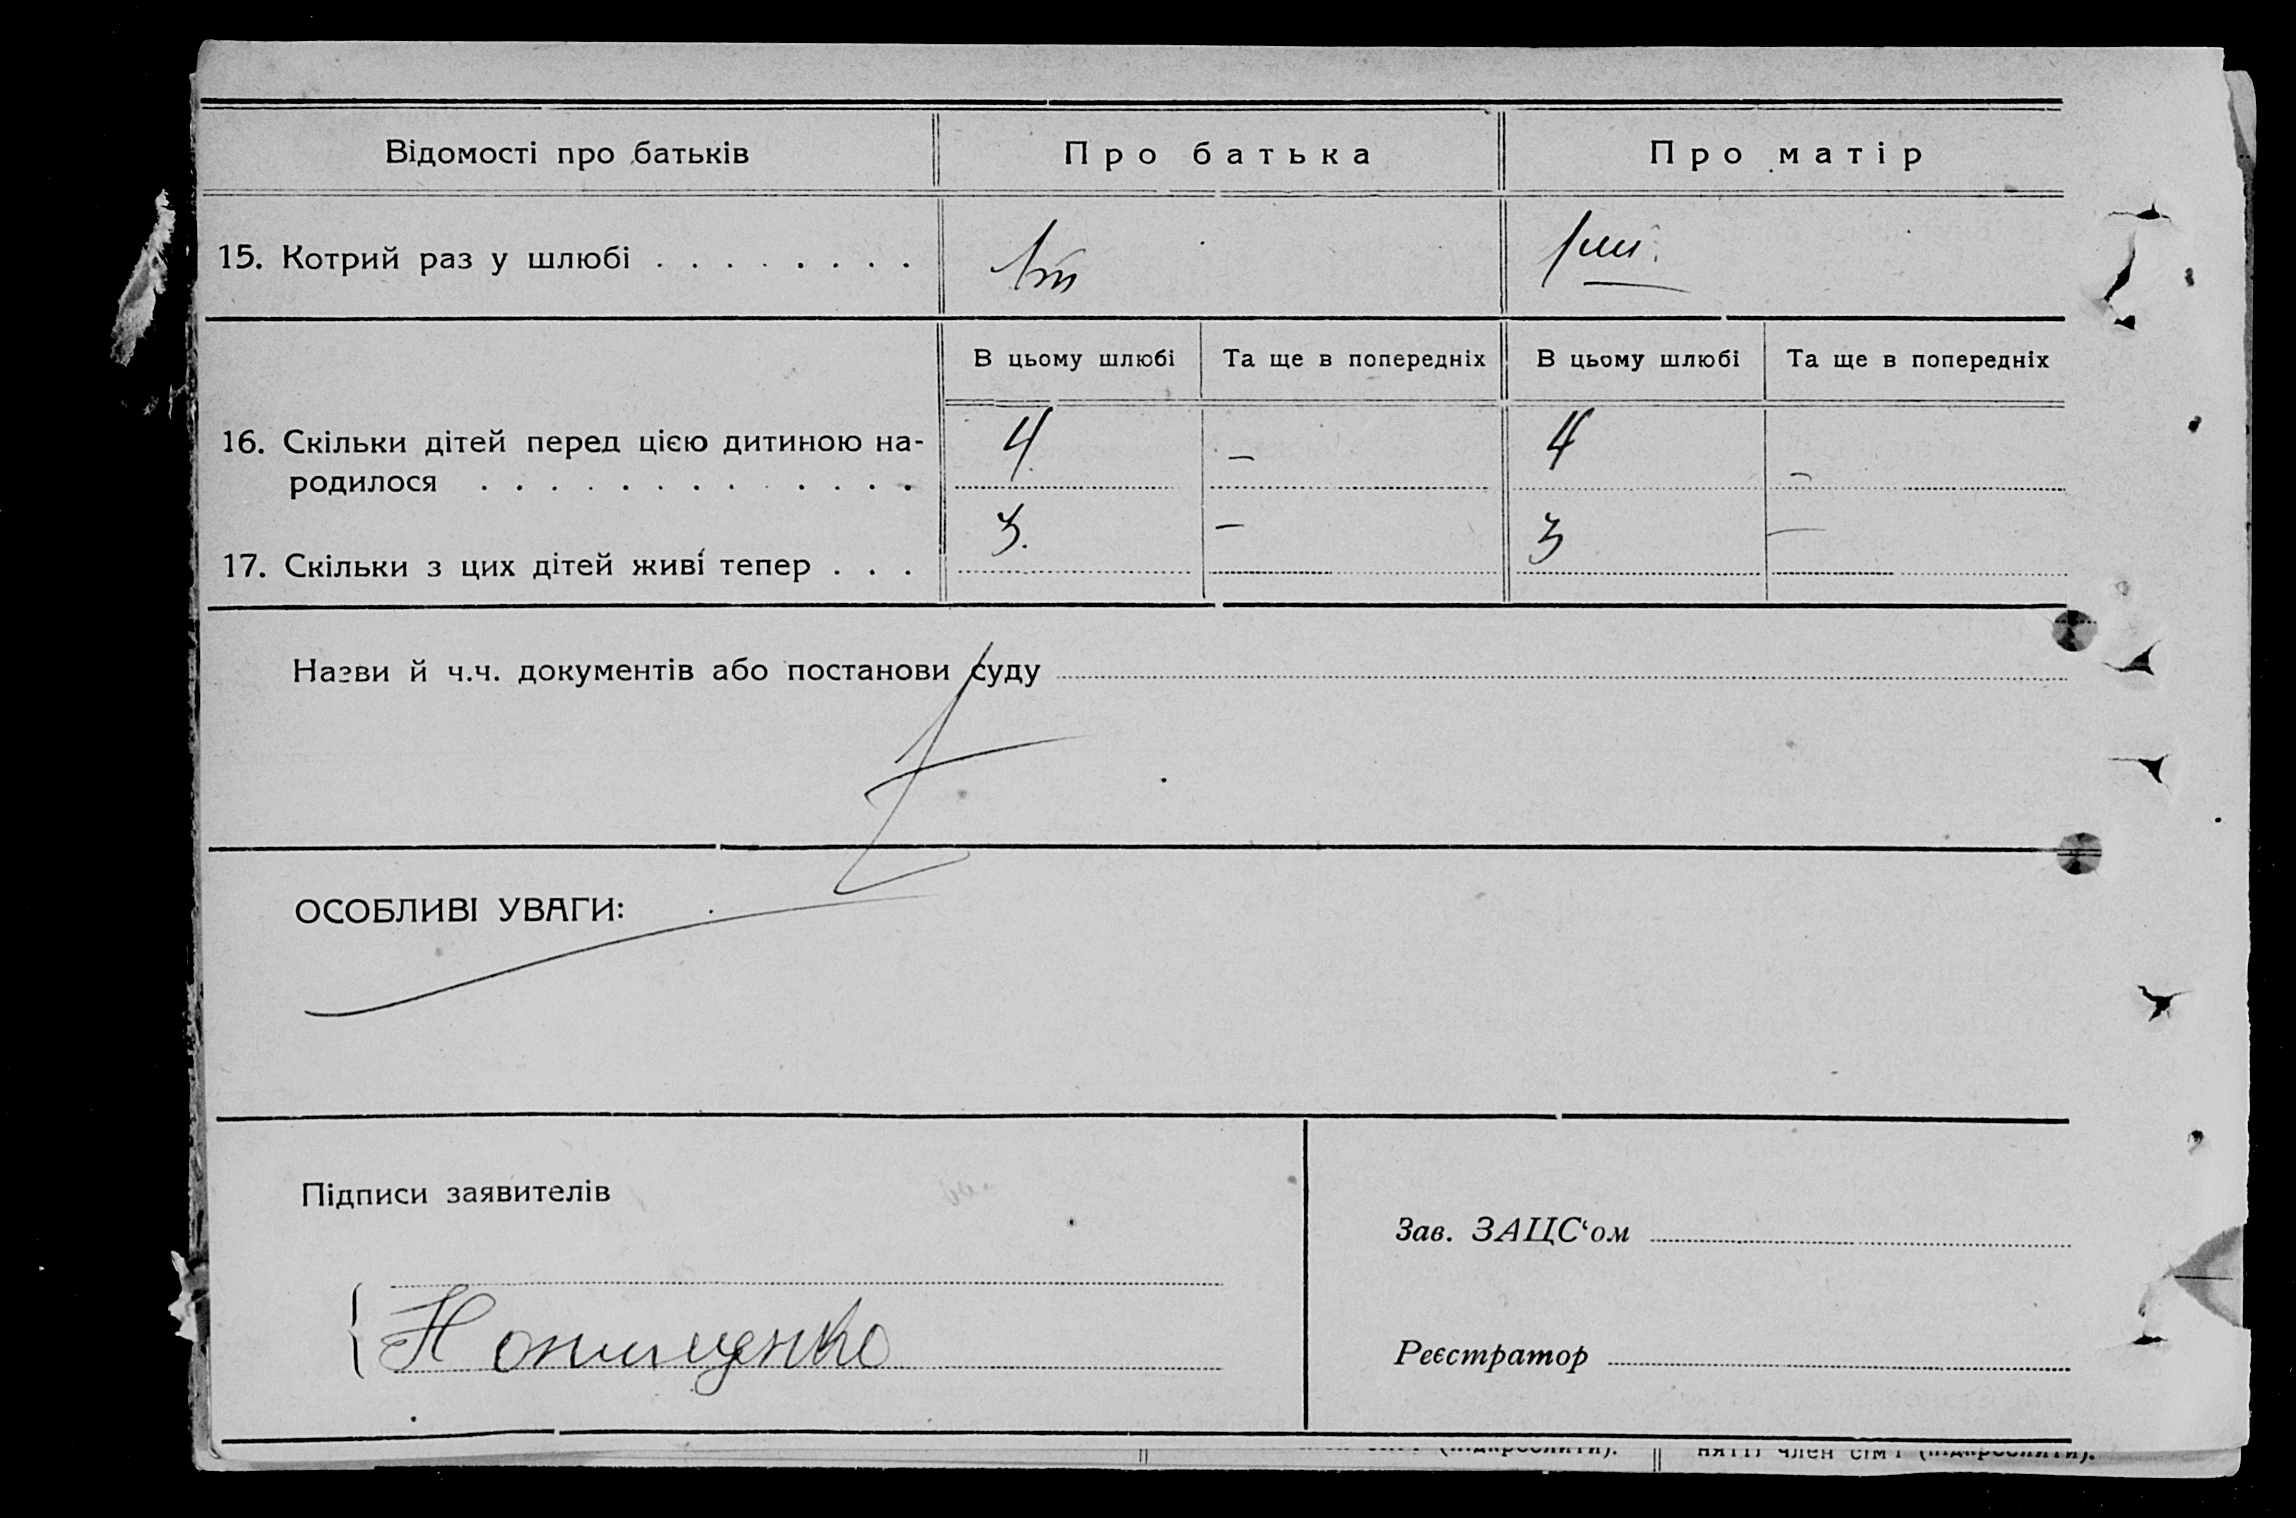 Відомості про батьків Про батька Про матір
15. Котрий раз у шлюбі . . . . . . . .
В цьому шлюбі Та ще в попередніх В цьому шлюбі Та ще в попередніх
16. Скільки дітей перед цією дитиною на-
родилося . . . . . . . . . . . . . 4 — 4 —
17. Скільки з цих дітей живі тепер . . . 3. — 3 —
Назви й ч.ч. документів або постанови суду
ОСОБЛИВІ УВАГИ:
Підписи заявителів
Зав. ЗАЦС‘ом
Реєстратор
няттї член сім'ї (підкреслити).